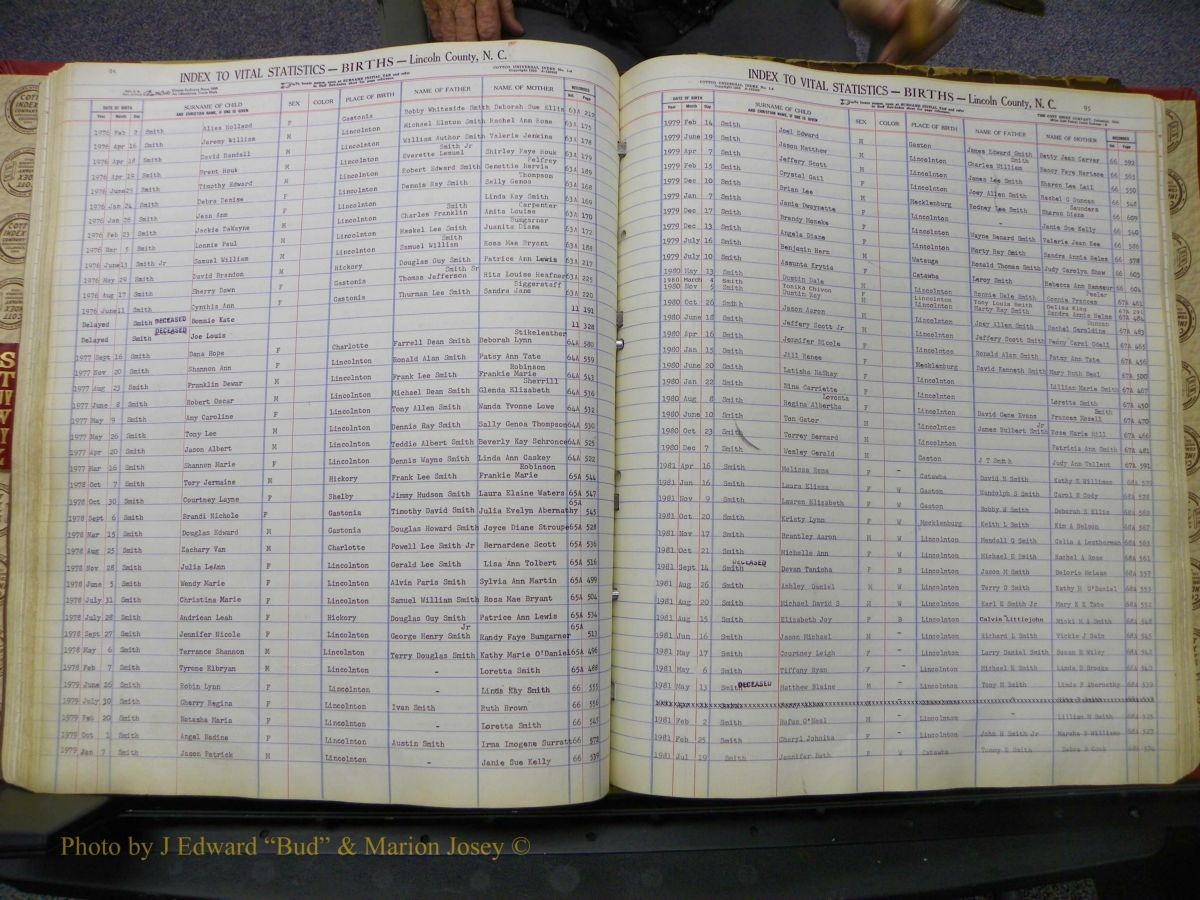 INDEX TO VITAL STATISTICS — BIRTHS — Lincoln County, N. C.
DATE OF BIRTH SURNAME OF CHILD SEX COLOR PLACE OF BIRTH NAME OF FATHER NAME OF MOTHER RECORDED
Year Month Day AND CHRISTIAN NAME, IF ONE IS GIVEN Vol. Page
1976 Feb 2 Smith Alisa Holland F Gastonia Bobby Whiteside Smith Deborah Sue Ellis 63A 212
1976 Apr 16 Smith Jeremy William M Lincolnton Michael Elston Smith Rachel Ann Rome 63A 175
1976 Apr 18 Smith David Randall M Lincolnton William Author Smith Jr Valerie Jenkins 63A 178
1976 Apr 19 Smith Brent Houk M Lincolnton Everette Lemuel Shirley Faye Houk 63A 179
1976 June 25 Smith Timothy Edward M Lincolnton Robert Edward Smith 63A 189
1976 Jan 24 Smith Debra Denise F Lincolnton Dennis Ray Smith Sally Genoa Thompson 63A 168
1976 Jan 28 Smith Jean Ann F Lincolnton Linda Kay Smith 63A 169
1976 Feb 23 Smith Jackie DaKayne M Lincolnton Charles Franklin Smith Anita Louise Carpenter 63A 170
1976 Mar 5 Smith Lonnie Paul M Lincolnton Haskel Lee Smith Juanita Diane Bumgarner 63A 172
1976 June 13 Smith Jr Samuel William M Lincolnton Samuel William Smith Rosa Mae Bryant 63A 188
1976 May 29 Smith David Brandon M Hickory Douglas Guy Smith Patrice Ann Lewis 63A 217
1976 Aug 17 Smith Sherry Dawn F Gastonia Thomas Jefferson Smith Sr Rita Louise Heafner 63A 225
1976 June 11 Smith Cynthia Ann F Gastonia Thurman Lee Smith Sandra Jane Siggerstaff 63A 220
Delayed Smith DECEASED Bonnie Kate 11 191
Delayed Smith DECEASED Joe Louis 11 328
1977 Sept 16 Smith Dana Hope F Charlotte Farrell Dean Smith Deborah Lynn Stikeleather 64A 580
1977 Nov 20 Smith Shannon Ann F Lincolnton Ronald Alan Smith Patsy Ann Tate 64A 559
1977 Aug 23 Smith Franklin Dewar M Lincolnton Frank Lee Smith Frankie Marie Robinson 64A 543
1977 June 8 Smith Robert Oscar M Lincolnton Michael Dean Smith Glenda Elizabeth Sherrill 64A 536
1977 May 9 Smith Amy Caroline F Lincolnton Tony Allen Smith Wanda Yvonne Lowe 64A 532
1977 May 26 Smith Tony Lee M Lincolnton Dennis Ray Smith Sally Genoa Thompson 64A 530
1977 Apr 20 Smith Jason Albert M Lincolnton Teddie Albert Smith Beverly Kay Schronce 64A 525
1977 Mar 16 Smith Shannon Marie F Lincolnton Dennis Wayne Smith Linda Ann Caskey 64A 522
1978 Oct 7 Smith Tory Jermaine M Hickory Frank Lee Smith Frankie Marie Robinson 65A 544
1978 Oct 30 Smith Courtney Layne F Shelby Jimmy Hudson Smith Laura Elaine Waters 65A 547
1978 Sept 6 Smith Brandi Nichole F Gastonia Timothy David Smith Julia Evelyn Abernathy 65A 545
1978 Mar 15 Smith Douglas Edward M Gastonia Douglas Howard Smith Joyce Diane Stroupe 65A 528
1978 Aug 25 Smith Zachary Van M Charlotte Powell Lee Smith Jr Bernardene Scott 65A 536
1978 Nov 28 Smith Julia LeAnn F Lincolnton Gerald Lee Smith Lisa Ann Tolbert 65A 516
1978 June 5 Smith Wendy Marie F Lincolnton Alvin Paris Smith Sylvia Ann Martin 65A 499
1978 July 31 Smith Christina Marie F Lincolnton Samuel William Smith Rosa Mae Bryant 65A 504
1978 July 28 Smith Andriean Leah F Hickory Douglas Guy Smith Patrice Ann Lewis 65A 534
1978 Sept 27 Smith Jennifer Nicole F Lincolnton George Henry Smith Jr Randy Faye Bumgarner 65A 513
1978 May 6 Smith Terrance Shannon M Lincolnton Terry Douglas Smith Kathy Marie O'Daniel 65A 496
1978 Feb 7 Smith Tyrone Elbryan M Lincolnton - Loretta Smith 65A 488
1979 June 26 Smith Robin Lynn F Lincolnton - Linda Kay Smith 66 555
1979 July 30 Smith Cherry Regina F Lincolnton Ivan Smith Ruth Brown 66 556
1979 Feb 20 Smith Natasha Maria F Lincolnton - Loretta Smith 66 545
1979 Oct 1 Smith Angel Nadine F Lincolnton Austin Smith Irma Imogene Surratt 66 572
1979 Jan 7 Smith Jason Patrick M Lincolnton - Janie Sue Kelly 66 539
INDEX TO VITAL STATISTICS — BIRTHS — Lincoln County, N. C. 95
DATE OF BIRTH SURNAME OF CHILD SEX COLOR PLACE OF BIRTH NAME OF FATHER NAME OF MOTHER RECORDED
Year Month Day AND CHRISTIAN NAME, IF ONE IS GIVEN Vol. Page
1979 Feb 14 Smith Joel Edward M Gaston James Edward Smith Betty Jean Carver 66 592
1979 June 19 Smith Jason Matthew M Lincolnton Charles William Smith Nancy Faye Hartsoe 66 593
1979 Apr 7 Smith Jeffery Scott M Lincolnton James Lee Smith Sharon Lee Lail 66 550
1979 Feb 15 Smith Crystal Gail F Mecklenburg Joey Allen Smith Rachel G Duncan 66 548
1979 Dec 10 Smith Brian Lee M Lincolnton Rodney Lee Smith Sharon Diane Saunders 66 609
1979 Jan 7 Smith Janie Dwaynette F Lincolnton - Janie Sue Kelly 66 540
1979 Dec 17 Smith Brandy Moneka F Lincolnton Wayne Denard Smith Valerie Jean Kee 66 586
1979 Dec 13 Smith Angela Diane F Lincolnton Marty Ray Smith Sandra Annie Helms 66 578
1979 July 16 Smith Benjamin Hern M Watauga Ronald Thomas Smith Judy Carolyn Shaw 66 603
1979 July 10 Smith Assunta Krytia F Catawba Leroy Smith Rebecca Ann Ramseur 66 604
1980 May 13 Smith Dustin Dale M Lincolnton Ronnie Dale Smith Connie Frances Peeler 67A 461
1980 March 4 Smith Tonika Chivon F Lincolnton Tony Louis Smith Delisa King 67A 291
1980 Nov 5 Smith Dustin Ray M Lincolnton Marty Ray Smith Sandra Annie Helms 67A 484
1980 Oct 26 Smith Jason Aaron M Lincolnton Joey Allen Smith Rachel Geraldine Duncan 67A 483
1980 June 18 Smith Jeffery Scott Jr M Lincolnton Jeffery Scott Smith Penny Carol Odell 67A 465
1980 Jan 15 Smith Jennifer Nicole F Lincolnton Ronald Alan Smith Patsy Ann Tate 67A 456
1980 June 20 Smith Jill Renee F Mecklenburg David Kenneth Smith Mary Ruth Beal 67A 500
1980 Jan 22 Smith Latisha NaShay F Lincolnton Lillian Marie Smith 67A 467
1980 Aug 8 Smith Nina Carriette Lovonta F Lincolnton Loretta Smith 67A 450
1980 June 10 Smith Regina Albertha F Lincolnton David Gene Evans Frances Mozell Smith 67A 470
1980 Oct 23 Smith Ton Gator M Lincolnton James Hulbert Smith Jr Rose Marie Hill 67A 466
1980 Dec 7 Smith Torrey Bernard M Lincolnton Patricia Ann Smith 67A 481
Wesley Gerald M Gaston J T Smith Judy Ann Tallent 67A 591
1981 Apr 16 Smith Melissa Rena F - Catawba David N Smith Kathy S Williams 68A
1981 Jun 16 Smith Laura Elissa F W Gaston Randolph S Smith Carol S Cody 68A
1981 Nov 9 Smith Lauren Elizabeth F W Gaston Bobby W Smith Deborah S Ellis 68A
1981 Oct 20 Smith Kristy Lynn F W Mecklenburg Keith L Smith Kim A Nelson 68A 567
1981 Nov 17 Smith Brantley Aaron M W Lincolnton Kendall G Smith Celia A Leatherman 68A 563
1981 Oct 21 Smith Michelle Ann F W Lincolnton Michael E Smith Rachel A Rose 68A 561
1981 Sept 14 Smith DECEASED Devan Tanisha F B Lincolnton Jason M Smith Deloris McLean 68A 557
1981 Aug 26 Smith Ashley Daniel M W Lincolnton Terry D Smith Kathy M O'Daniel 68A 553
1981 Aug 20 Smith Michael David S M W Lincolnton Karl E Smith Jr Mary K K Tate 68A 552
1981 Aug 15 Smith Elisabeth Joy F B Lincolnton Calvin Littlejohn Nicki M A Smith 68A 548
1981 Jun 16 Smith Jason Michael M - Lincolnton Richard L Smith Vickie J Sain 68A 545
1981 May 17 Smith Courtney Leigh F - Lincolnton Larry Daniel Smith Susan E Wiley 68A 542
1981 May 6 Smith Tiffany Ryan F - Lincolnton Michael E Smith Linda D Brooks 68A 540
1981 May 13 Smith DECEASED Matthew Blaine M - Lincolnton Tony M Smith Linda P Abernathy 68A 539
1981 Feb 2 Smith Rufus O'Neal M - Lincolnton - Lillian M Smith 68A 525
1981 Feb 25 Smith Cheryl Johnita F - Lincolnton John H Smith Jr Marsha D Williams 68A 527
1981 Jul 19 Smith Jennifer Beth F W Catawba Tommy E Smith Debra D Cook 68A 574
Photo by J Edward “Bud” & Marion Josey ©